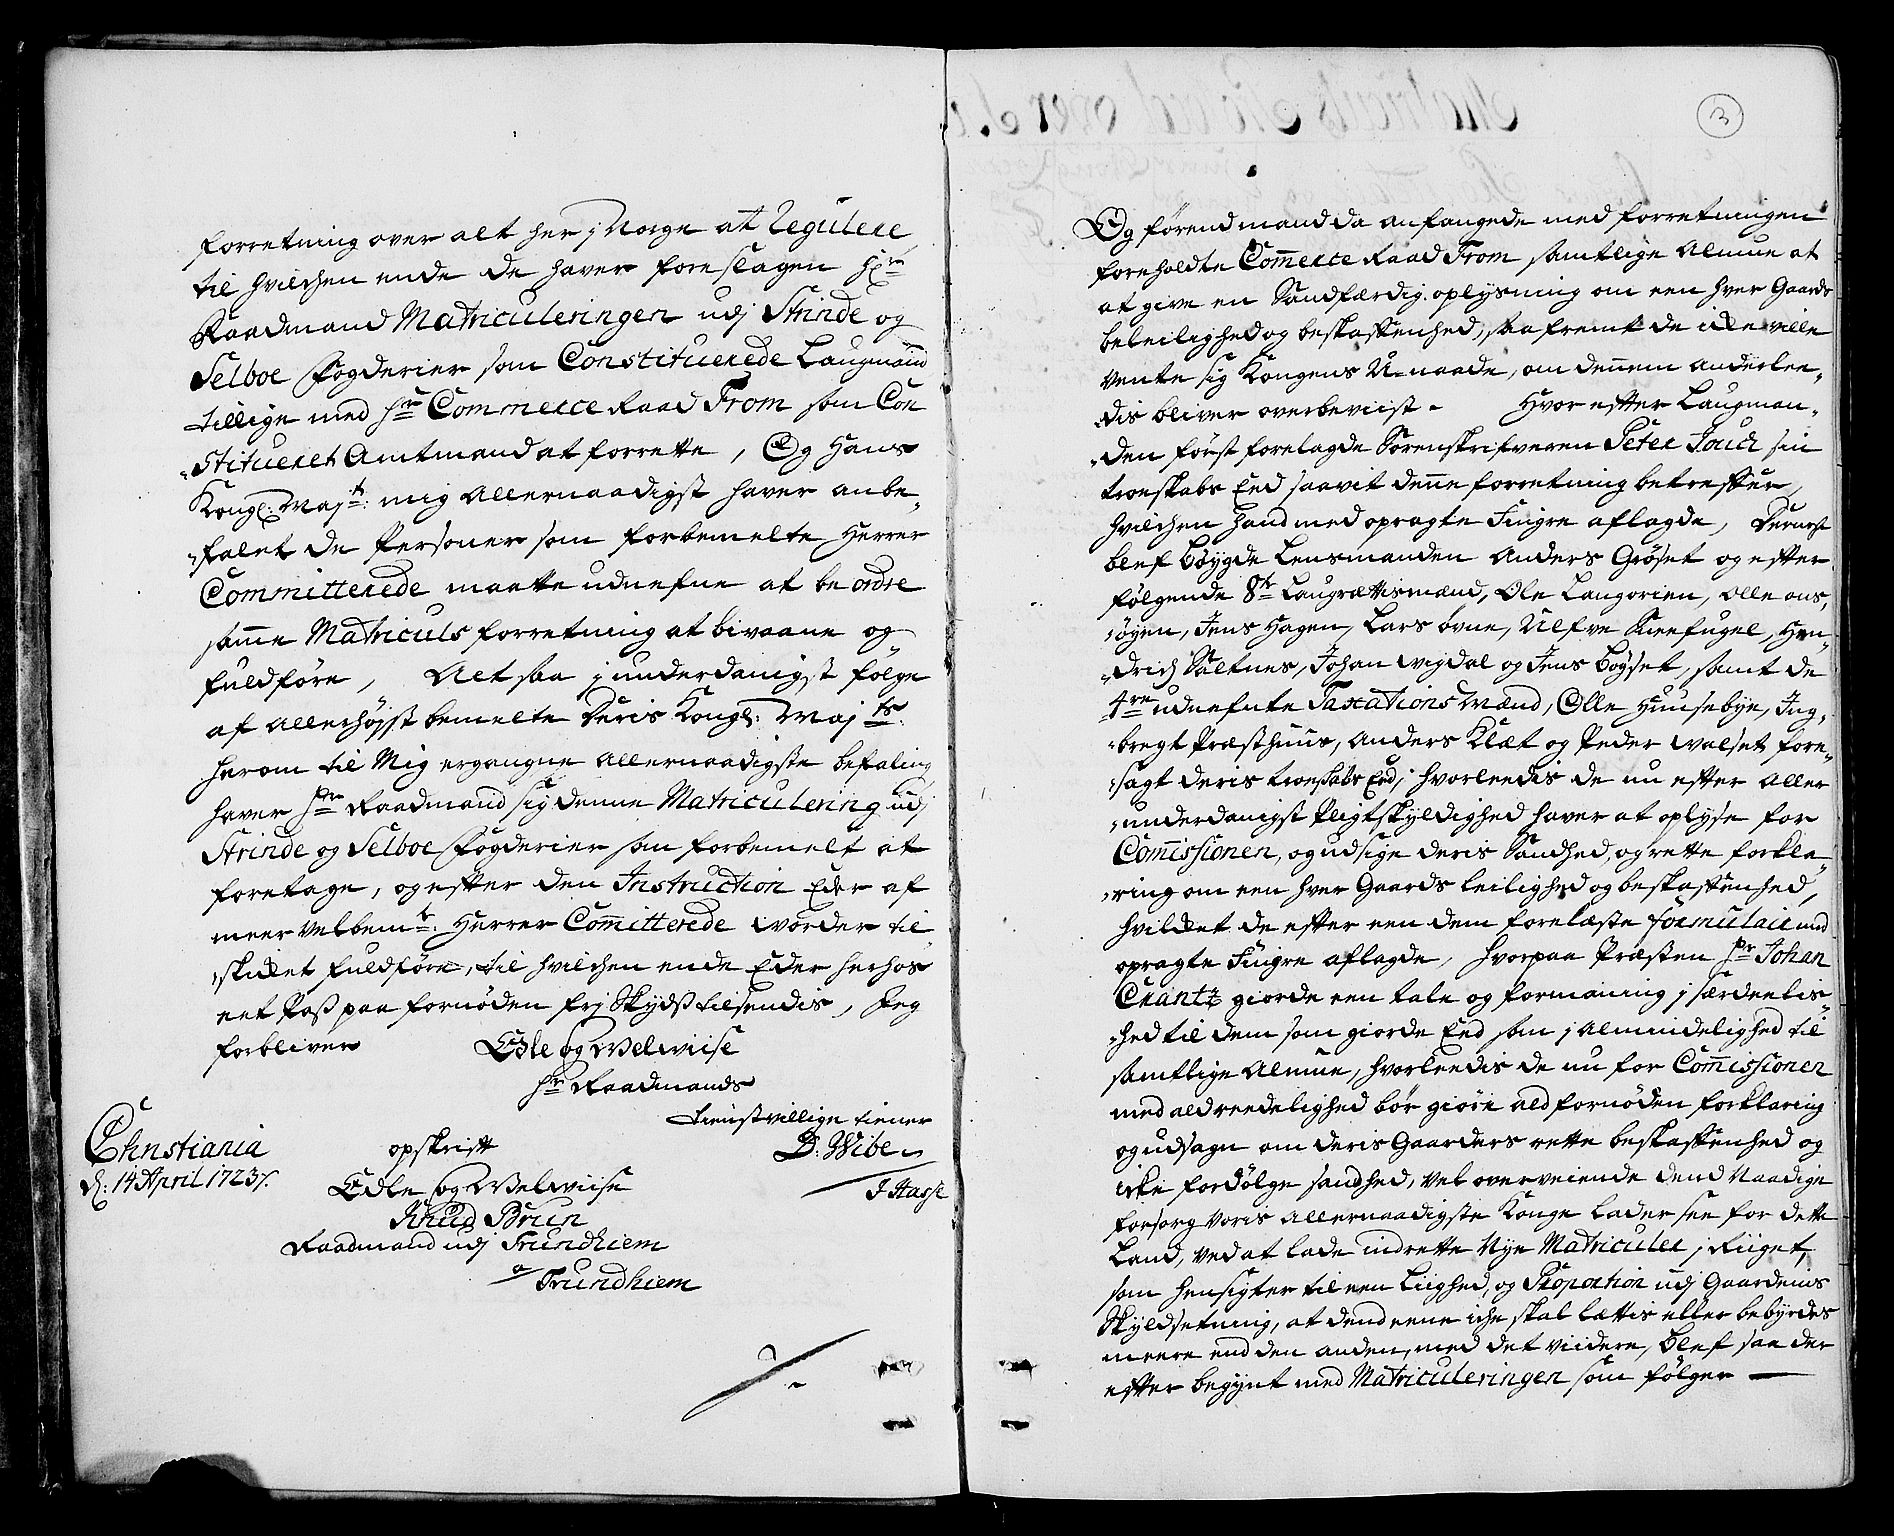 forretning over alt her j Norge at Regulere
til hvilchen ende de haver foreslagen Hr
Raadmand Matriculeringen udj Strinde og
Selboe Fogderier som Constituerede Laugmand
tillige med Hr Commerce Raad From som Con
stitueret Amtmand at forrette, Og Hans
Kongl: Mayt: mig Allernaadigst haver anbe-
falet de Personer som forbemelte Herrer
Committerede maatte udnefne at beordre
samme Matriculs forretning at bivaane og
fuldføre, Alt saa j underdanigst følge
af Allerhøyst bemelte Deris Kongl: Mayts:
herom til Mig ergangne Allernaadigste befaling,
haver Hr Raadmand sig denne Matriculering udj
Strinde og Selboe Fogderier som forbemelt at
foretage, og efter den Instruction Eder af
meer velbemte: Herrer Comitterede vorder til
skicket fuldføre, til hvilchen ende Eder herhos
eet Pass paa fornøden frj Skyds tilsendis, Jeg
forbliver
Edle og Velviise
Hr Raadmands
tienstvillige tiener
Christiania
d: 14 April 1723.
D: Wibe
J Hasse
opskrift
Edle og Velviise
Knud Brun
Raadmand udj Trundhiem
a Trundhiem
3
Og førend mand da anfangede med forretningen
foreholdte Commerce Raad From samtlige Almue at
at give en Sandfærdig oplysning om een hver Gaards
beleilighed og beskaffenhed, saa fremt de icke ville
vente sig Kongens U-naade, om dennem anderlee-
dis bliver overbeviist - Hvor efter Laugman-
den først forelagde Sorenskrifveren Peter Juch sin
troeskabs Eed saavit denne forretning betreffer,
hvilchen hand med opragte Fingre aflagde, Dernest
blef Bøygde Lensmanden Anders Grøset og efter
følgende 8te Laugrættismænd, Ole Langorien, Olle ons,
øyen, Jens Hagen, Lars övne, Ulfve Kneefugel, Hen-
drich Saltnes, Johan Wigdal og Jens Bøyset, samt de
4re udnefnte Taxations Mænd, Olle Huusebye, Ing-
bregt Præsthuus, Anders Klæt og Peder Walset fore-
sagt deris troeskabs Eed, hvorleedis de nu efter Aller
underdanigst Pligtskyldighed haver at oplyse for
Comissionen, og udsige deris Sandhed, og rette forkla-
ring om een hver Gaards leilighed og beskaffenhed,
hvilcket de efter een dem forelæste formulair med
opragte Fingre aflagde, Hvorpaa Præsten Hr Johan
Crantz giorde een tale og formaning j særdeelis-
hed til dem som giorde Eed som j almindelighed til
samtlige Almue, hvorleedis de nu for Comissionen
med ald reedelighed bør giøre ald fornøden forklaring
og udsagn om deris Gaarders rette beskaffenhed og
icke fordølge sandhed, vel overveiende dend Naadige
forsorg voris Allernaadigste Konge lader see for dette
Land, ved at lade indrette Nye Matriculer j Riiget,
som hensigter til een Liighed, og Proportion udj Gaardenis
Skyldsetning, at dend eene iche skal lættis eller bebyrdes
meere end den anden, med det viidere, blef saa der
efter begynt med Matriculeringen som følger